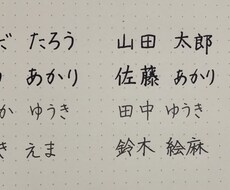 だ たろう 山田 太郎
あかり 佐藤 あかり
か ゆうき 田中 ゆうき
き えま 鈴木 絵麻